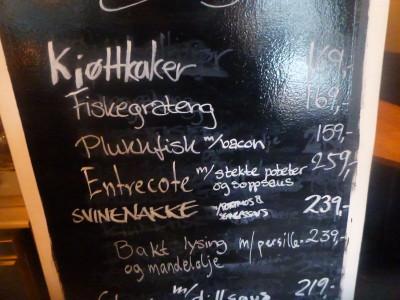 Kjøttkaker 169,-
Fiskegrateng 169,-
Plukkfisk m/bacon 159,-
Entrecote m/stekte poteter 259,-
og soppsaus
SVINENAKKE 239,-
Bakt lysing m/persille- 239,-
og mandelolje
m/dillsaus 219,-